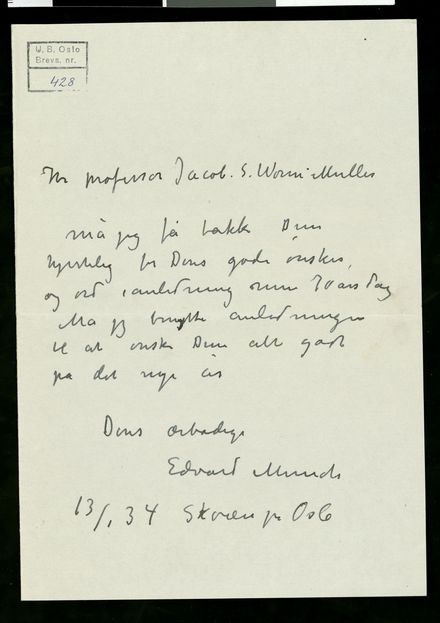 U. B. Oslo
Brevs. nr.
428
Hr professor Jacob. S. Worm-Muller
må jeg få takke Dem
hjertelig for Deres gode ønsker,
og ord i anledning min 70 års dag
Må jeg benytte anledningen
til at ønske Dem alt godt
på det nye år
Deres ærbødige
Edvard Munch
13/1 34 Skøien pr Oslo